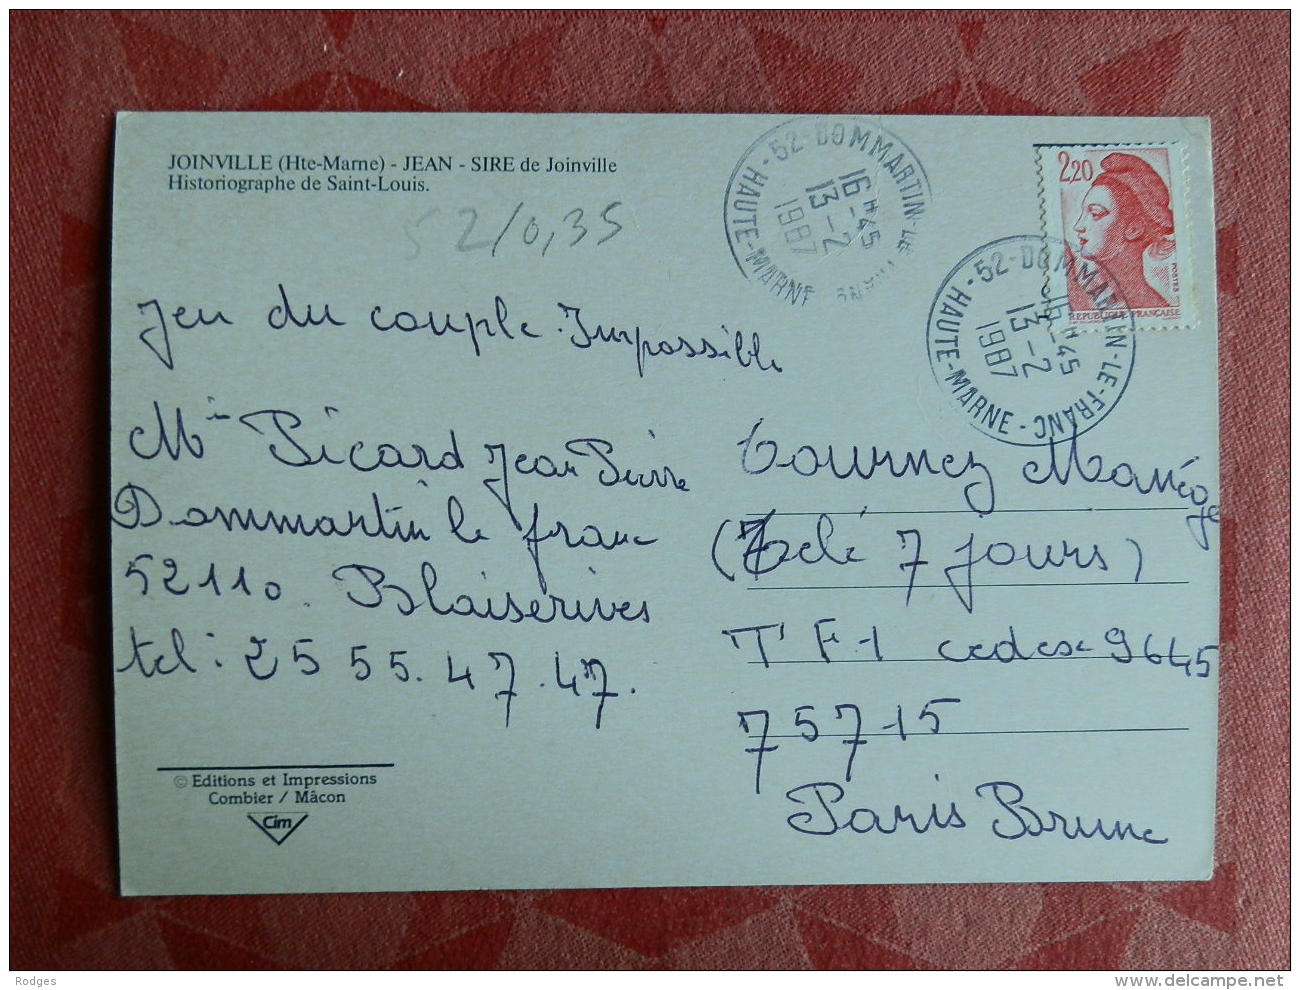 JOINVILLE (Hte-Marne) - JEAN - SIRE de Joinville
Historiographe de Saint-Louis.
52/0,35
52-DOMMARTIN-LE-FRANC
16H45
13-2
1987
HAUTE-MARNE
2,20
POSTES
REPUBLIQUE FRANÇAISE
52-DOMMARTIN-LE-FRANC
16H45
13-2
1987
HAUTE-MARNE
Jeu du couple Impossible
Mr Picard Jean Pierre
Dommartin le franc
52110. Blaiserives
tel: 25 55.47.47.
Tournez Manège
(Télé 7 jours)
TF1 cedex 9645
75715
Paris Brune
© Editions et Impressions
Combier / Mâcon
Cim
Rodges
www.delcampe.net